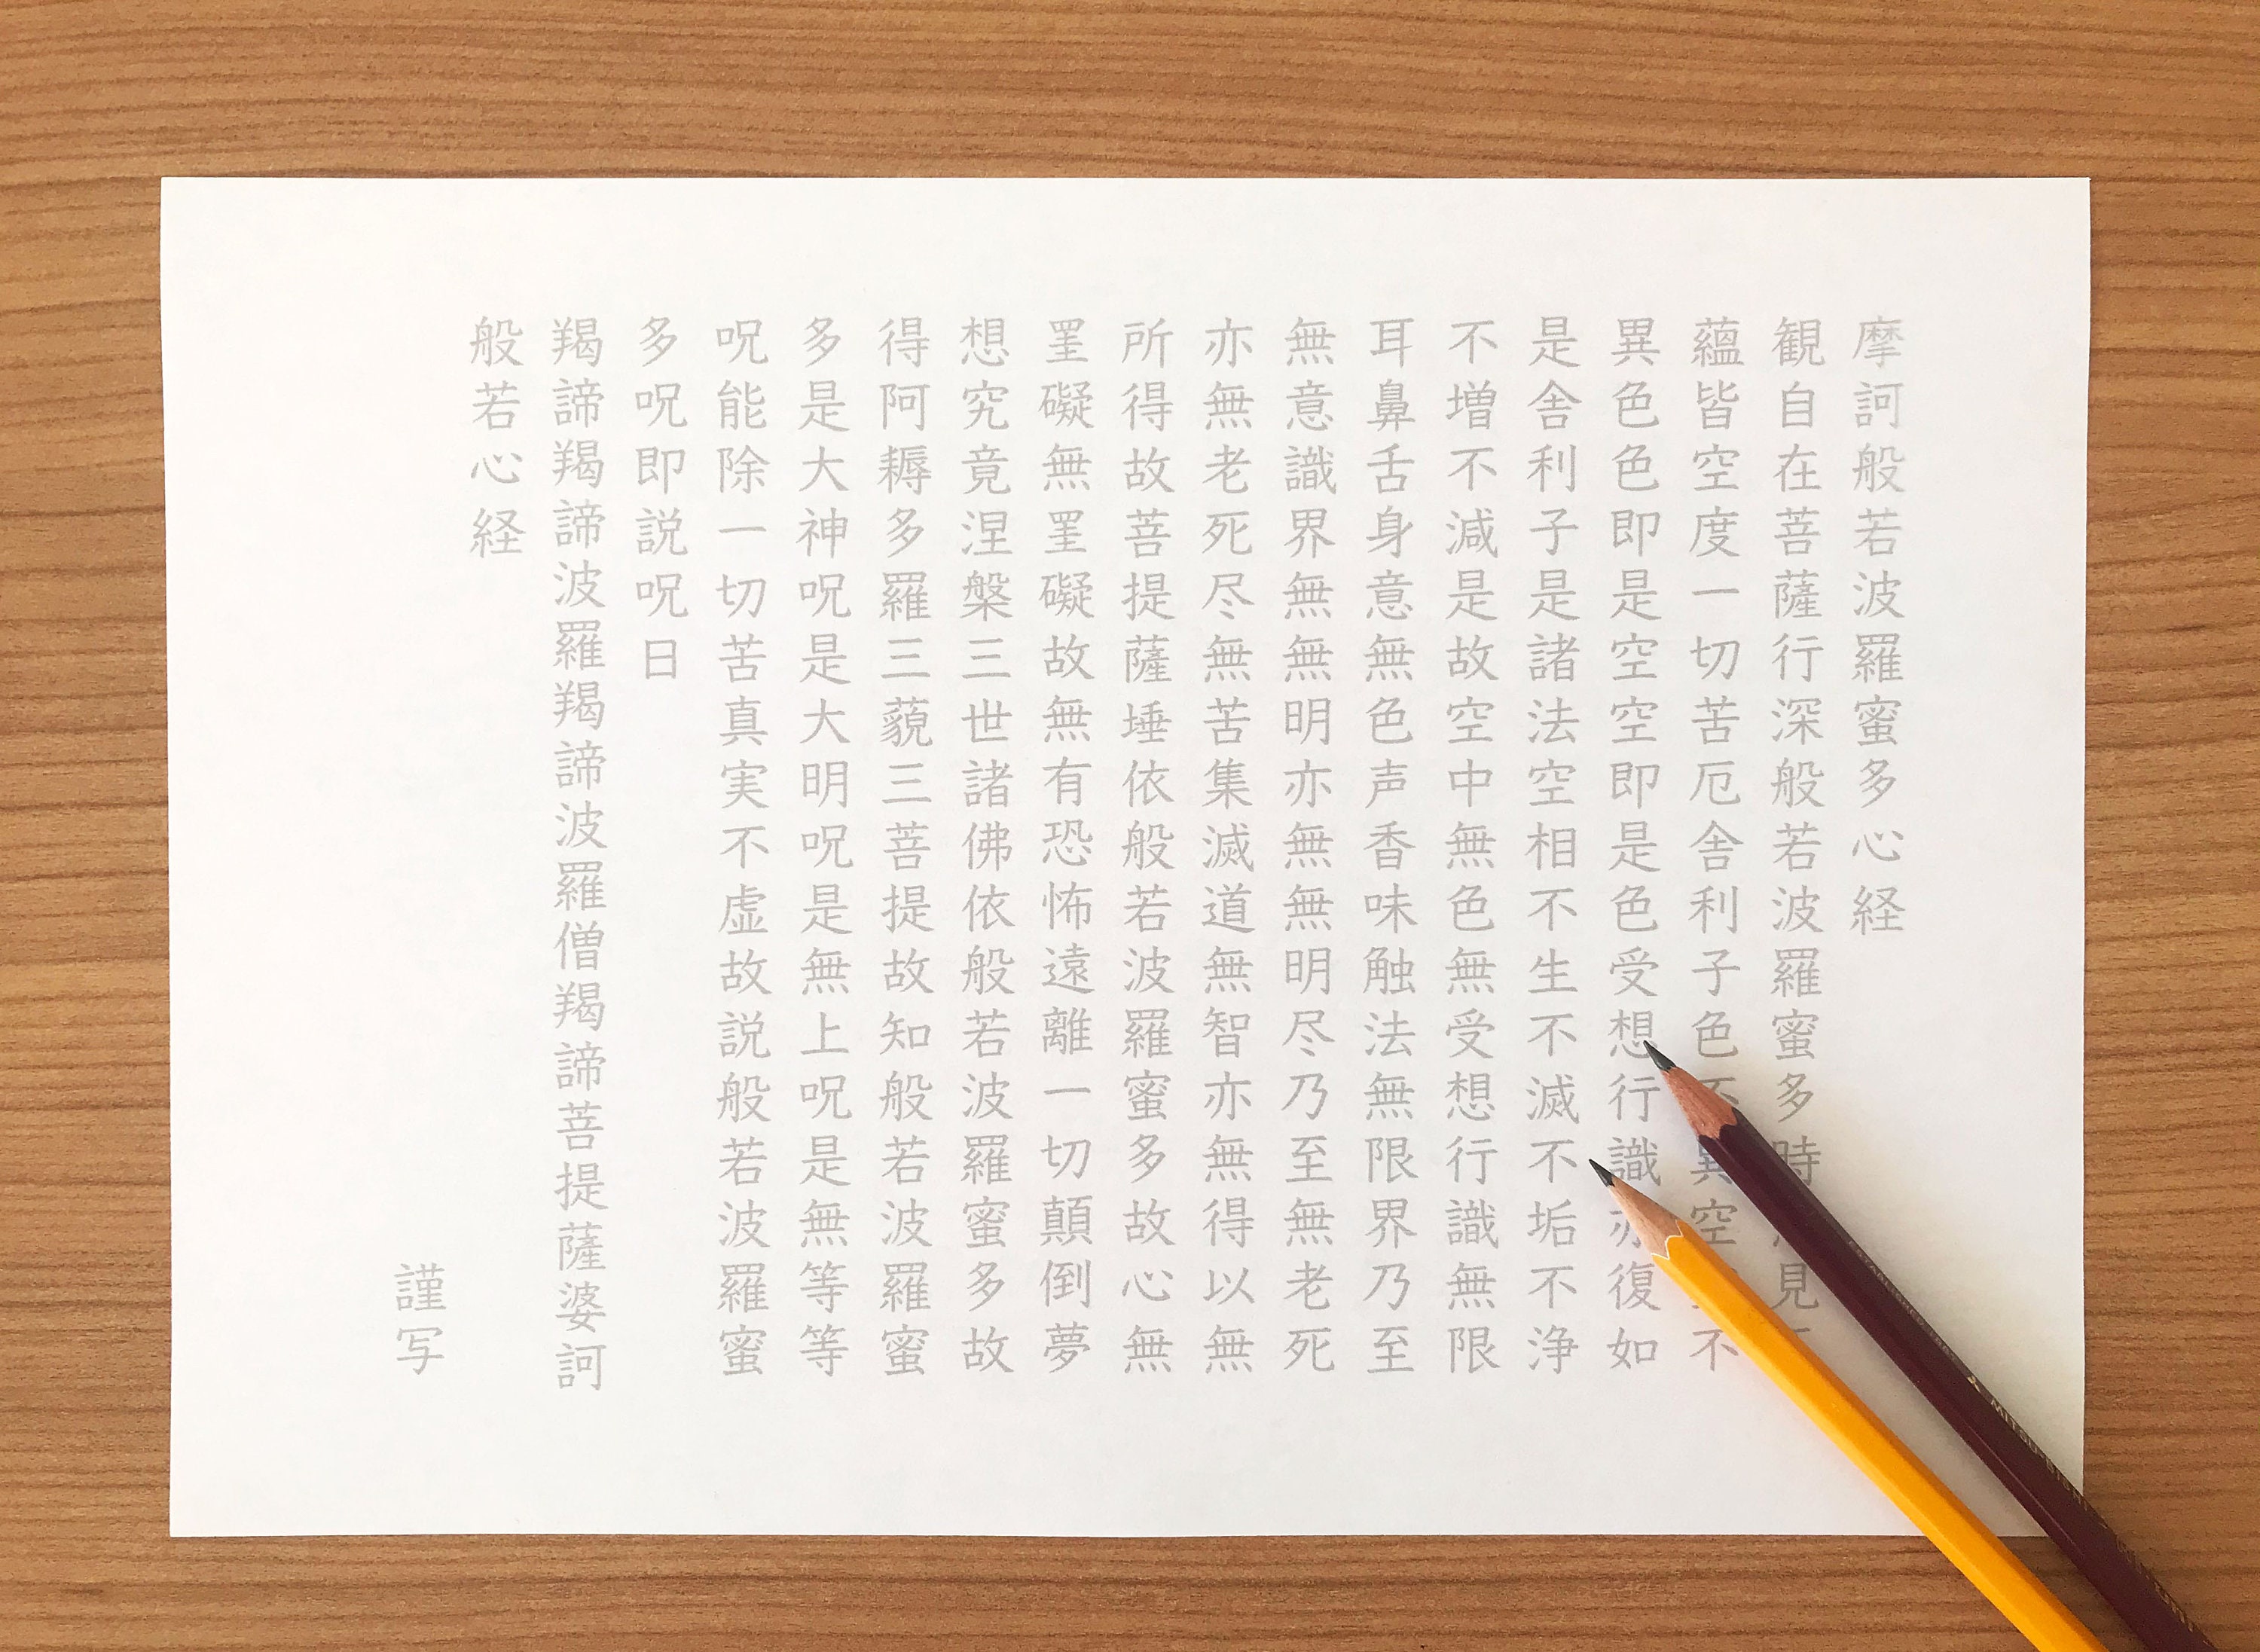 摩訶般若波羅蜜多心経
観自在菩薩行深般若波羅蜜多時見
蘊皆空度一切苦厄舎利子色不異空不
異色色即是空空即是色受想行識亦復如
是舎利子是諸法空相不生不滅不垢不浄
不増不減是故空中無色無受想行識無限
耳鼻舌身意無色声香味触法無限界乃至
無意識界無無明亦無無明尽乃至無老死
亦無老死尽無苦集滅道無智亦無得以無
所得故菩提薩埵依般若波羅蜜多故心無
罣礙無罣礙故無有恐怖遠離一切顛倒夢
想究竟涅槃三世諸佛依般若波羅蜜多故
得阿耨多羅三藐三菩提故知般若波羅蜜
多是大神呪是大明呪是無上呪是無等等
呪能除一切苦真実不虚故説般若波羅蜜
多呪即説呪日
羯諦羯諦波羅羯諦波羅僧羯諦菩提薩婆訶
般若心経
謹写